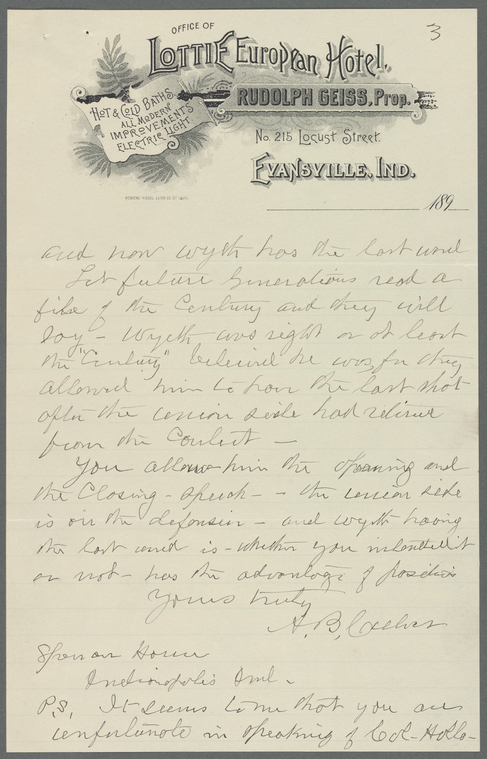 3
OFFICE OF
LOTTIE European Hotel.
RUDOLPH GEISS, Prop.
HOT & COLD BATHS
ALL MODERN
IMPROVEMENTS
ELECTRIC LIGHT.
No. 215 Locust Street.
EVANSVILLE, IND.
189
and now Wyeth has the last word
Let future Generations read a
file of the Century and they will
say - Wyeth was right or at least
the "Century" believed he was, for they
allowed him to have the last shot
after the union side had retired
from the Conflict -
You allow him the opening and
the Closing - speech - - the union side
is on the defensive - and Wyeth having
the last word is - whether you intended it
or not - has the advantage of position
Yours truly
A. B.
Spencer House
Indianapolis Ind -
P.S. It seems to me that you are
unfortunate in speaking of Col - Hollo-